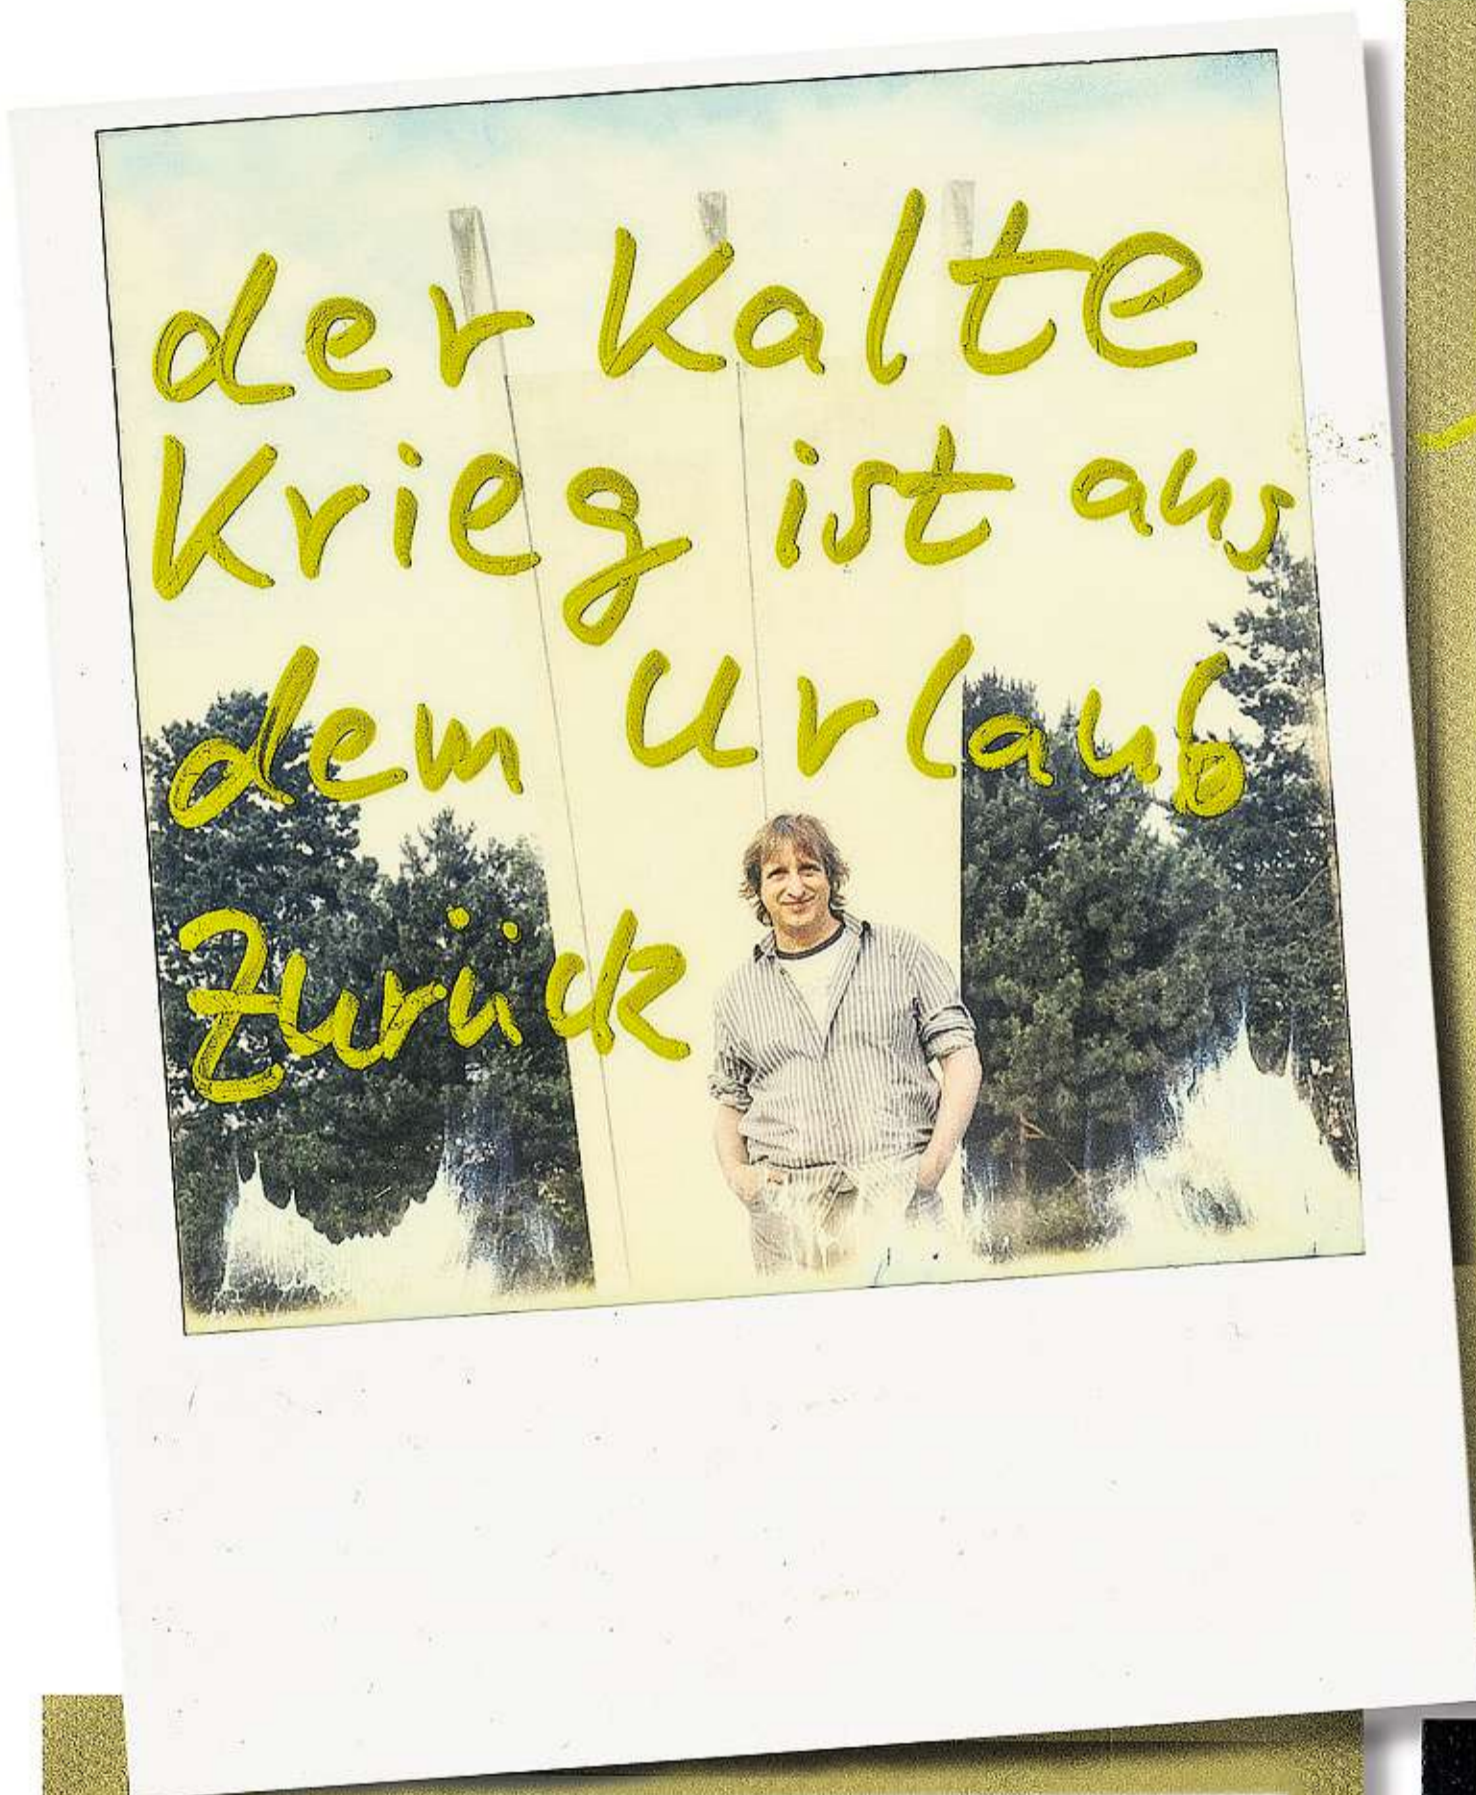 der Kalte
Krieg ist aus
dem Urlaub
Zurück